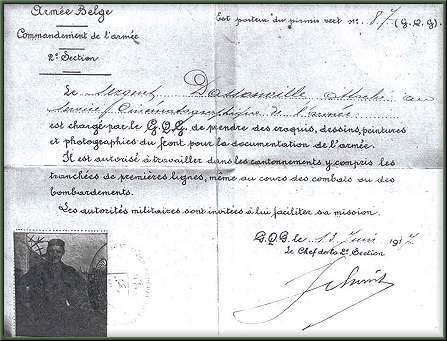 Armée Belge
Est porteur du permis vert no. 87 (G.Q.G).
Commandement de l'armée
2e Section
Le Sergent Dassonville Attaché au
Service Cinématographique de l'armée
est chargé par le G.Q.G. de prendre des croquis, dessins, peintures
et photographies du front pour la documentation de l'armée.
Il est autorisé à travailler dans les cantonnements y compris les
tranchées de premières lignes, même au cours des combats ou des
bombardements.
Les autorités militaires sont invitées à lui faciliter sa mission.
G.Q.G. le Juin 1917
Le Chef de la 2e Section